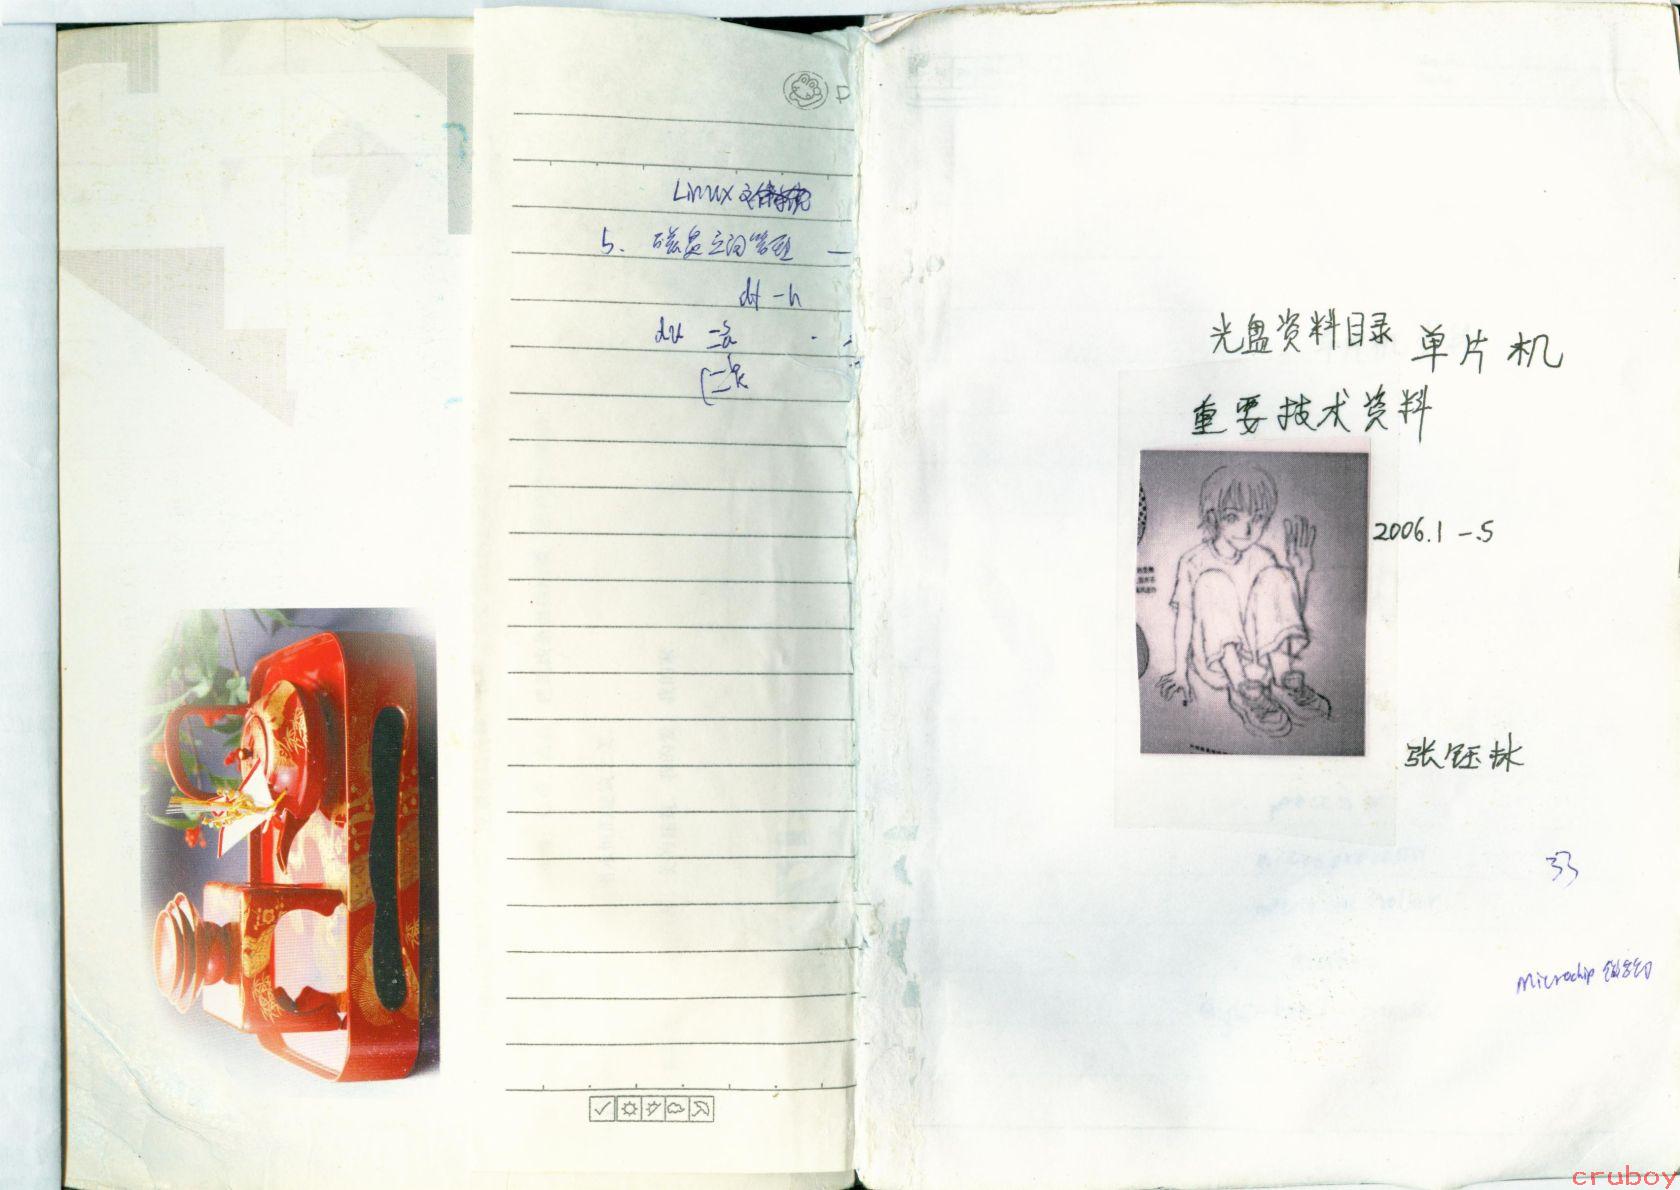 Linux 文件系统
5. 磁盘空间管理 —
df -h
du -s
-a
-b
-k
光盘资料目录 单片机
重要技术资料
2006.1 -.5
张钰林
33
Microchip
cruboy